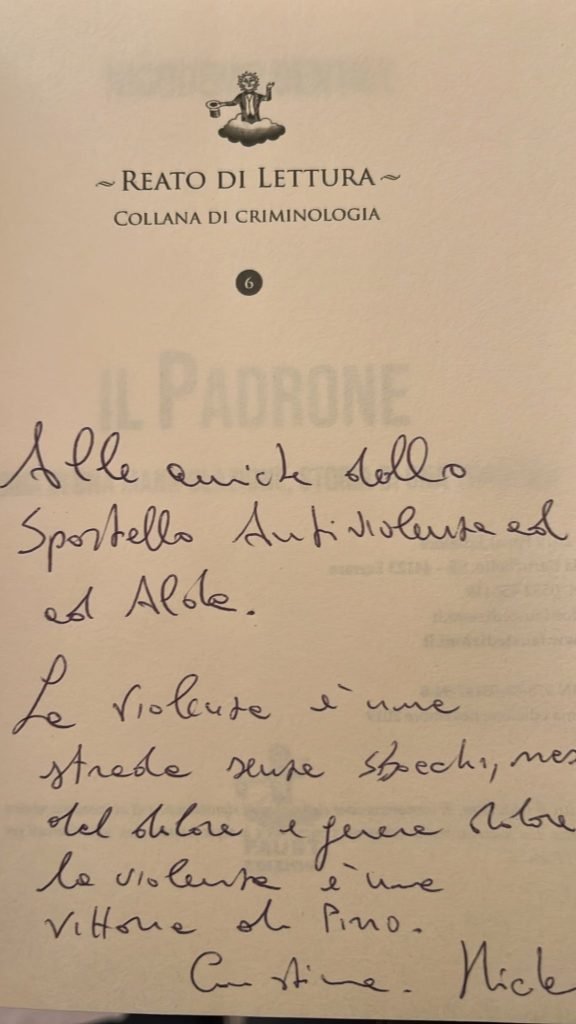 ~ REATO DI LETTURA ~
COLLANA DI CRIMINOLOGIA
6
IL PADRONE
Alle amiche dello
Sportello Antiviolenza ed
ed Alda.
La violenza è una
strada senza sbocchi, nas
dal dolore e genera dolore
la violenza è una
vittoria di Pirro.
Cristina. Nick